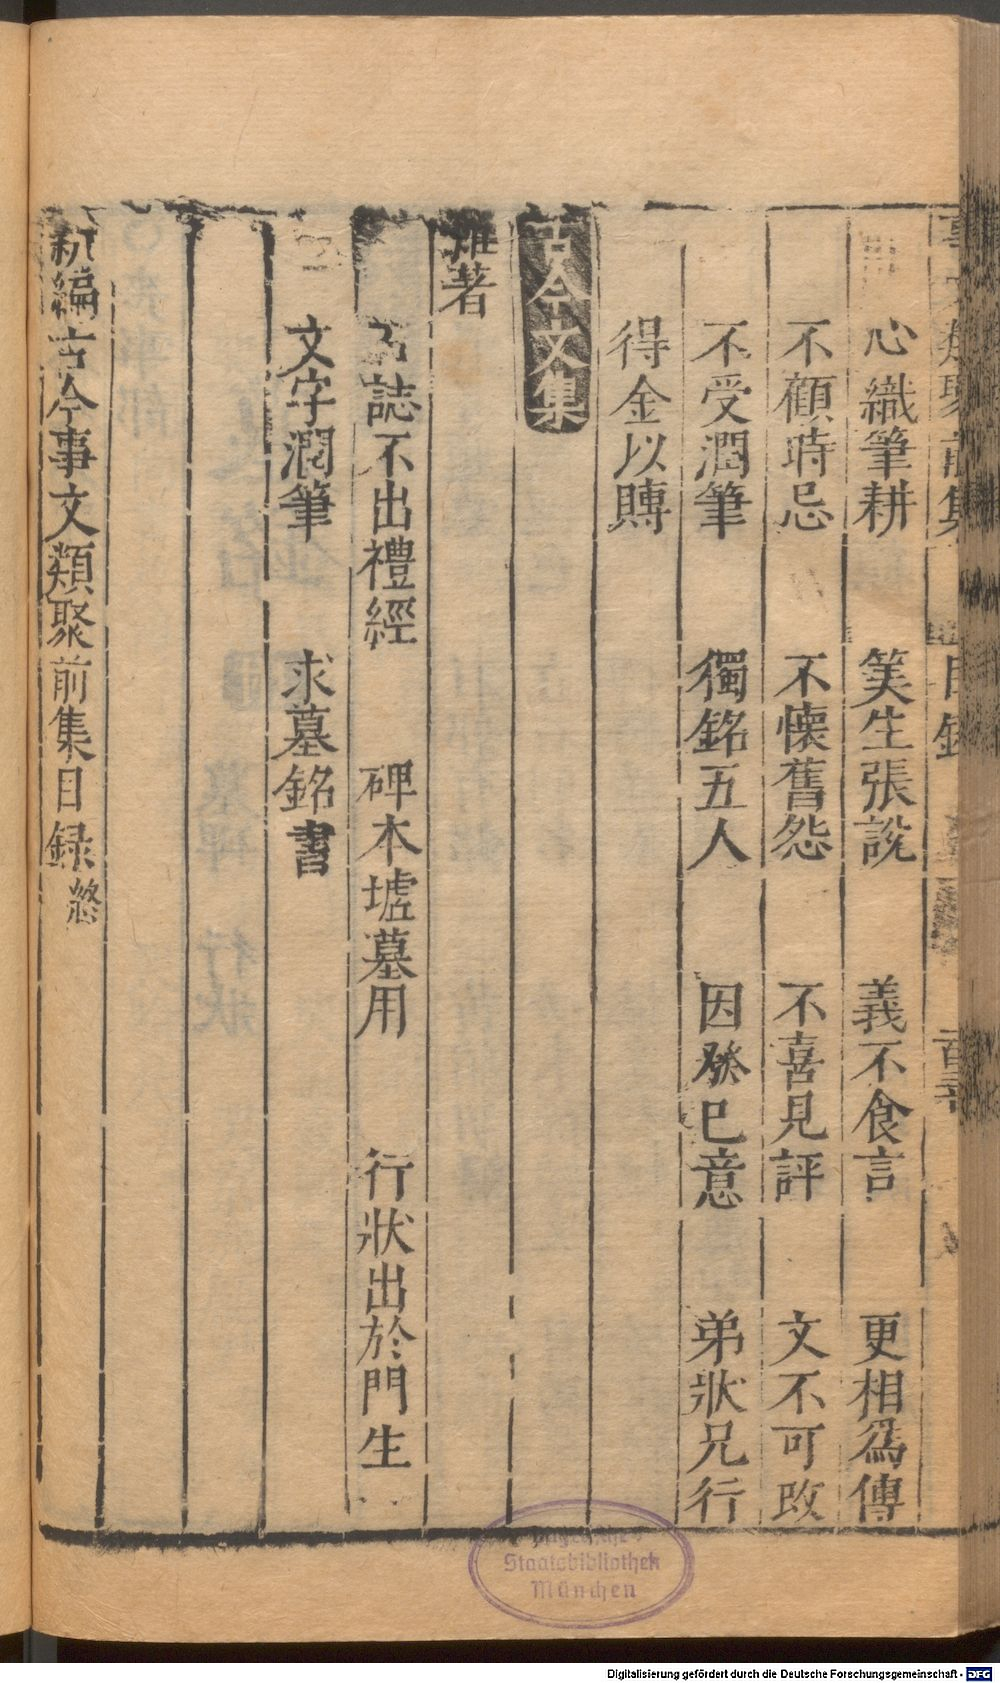 心織筆耕 笑生張說 義不食言 更相爲傳
不顧時忌 不懷舊怨 不喜見評 文不可改
不受潤筆 獨銘五人 因癸巳意 弟狀兄行
得金以賻
古今文集
雜著
誌不出禮經 碑本墟墓用 行狀出於門生
文字潤筆 求墓銘書
新編古今事文類聚前集目録終
Staatsbibliothek
München
Digitalisierung gefördert durch die Deutsche Forschungsgemeinschaft - DFG